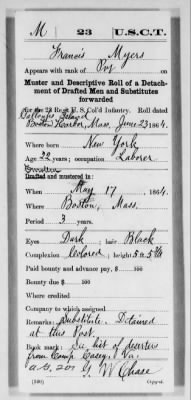 M 23 U.S.C.T.
Francis Myers
Appears with rank of Pvt on
Muster and Descriptive Roll of a Detach-
ment of Drafted Men and Substitutes
forwarded
for the 23 Reg't U.S. Col'd Infantry. Roll dated
Galloups Island
Boston Harbor, Mass, June 23, 1864.
Where born New York
Age 22 years; occupation Laborer
Drafted and mustered in:
When May 17, 1864.
Where Boston, Mass.
Period 3 years.
Eyes Dark; hair Black
Complexion Colored; height 5 ft. 5 in.
Paid bounty and advance pay, $ 100
Bounty due $ 100
Where credited
Company to which assigned
Remarks: Substitute. Detained
at this Post.
Book mark: See list of deserters
from Camp Casey, Va.
G. W Chase
(340) Copyist.